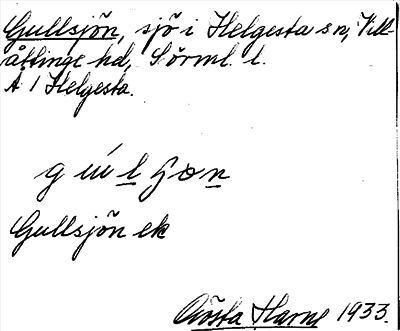 Gullsjön, sjö i Helgesta sn, Vill-
åttinge hd, Sörml. l.
A 1 Helgesta.
Gullsjön ek
Gösta Harne 1933.